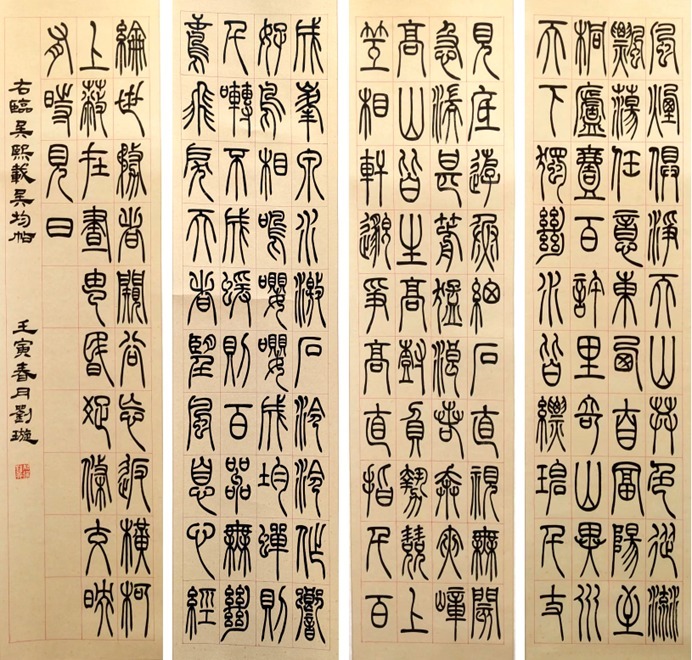 風煙俱淨天山共色從流
飄蕩任意東西自富陽至
桐廬壹百許里奇山異水
天下獨絕水皆縹碧千丈
見底遊魚細石直視無閡
急湍甚箭猛浪若奔夾嶂
高山皆生高樹負勢競上
笠相軒邈爭高直指千百
成峯泉水激石泠泠作響
好鳥相鳴嚶嚶成均蟬則
千囀不成蝯則百嘂無絕
鳶飛戾天者望風息心經
綸世務者闚谷忘返橫柯
上蔽在晝昏疏條交映
有時見日
右臨吳熙載吳均帖 壬寅春月劉璇